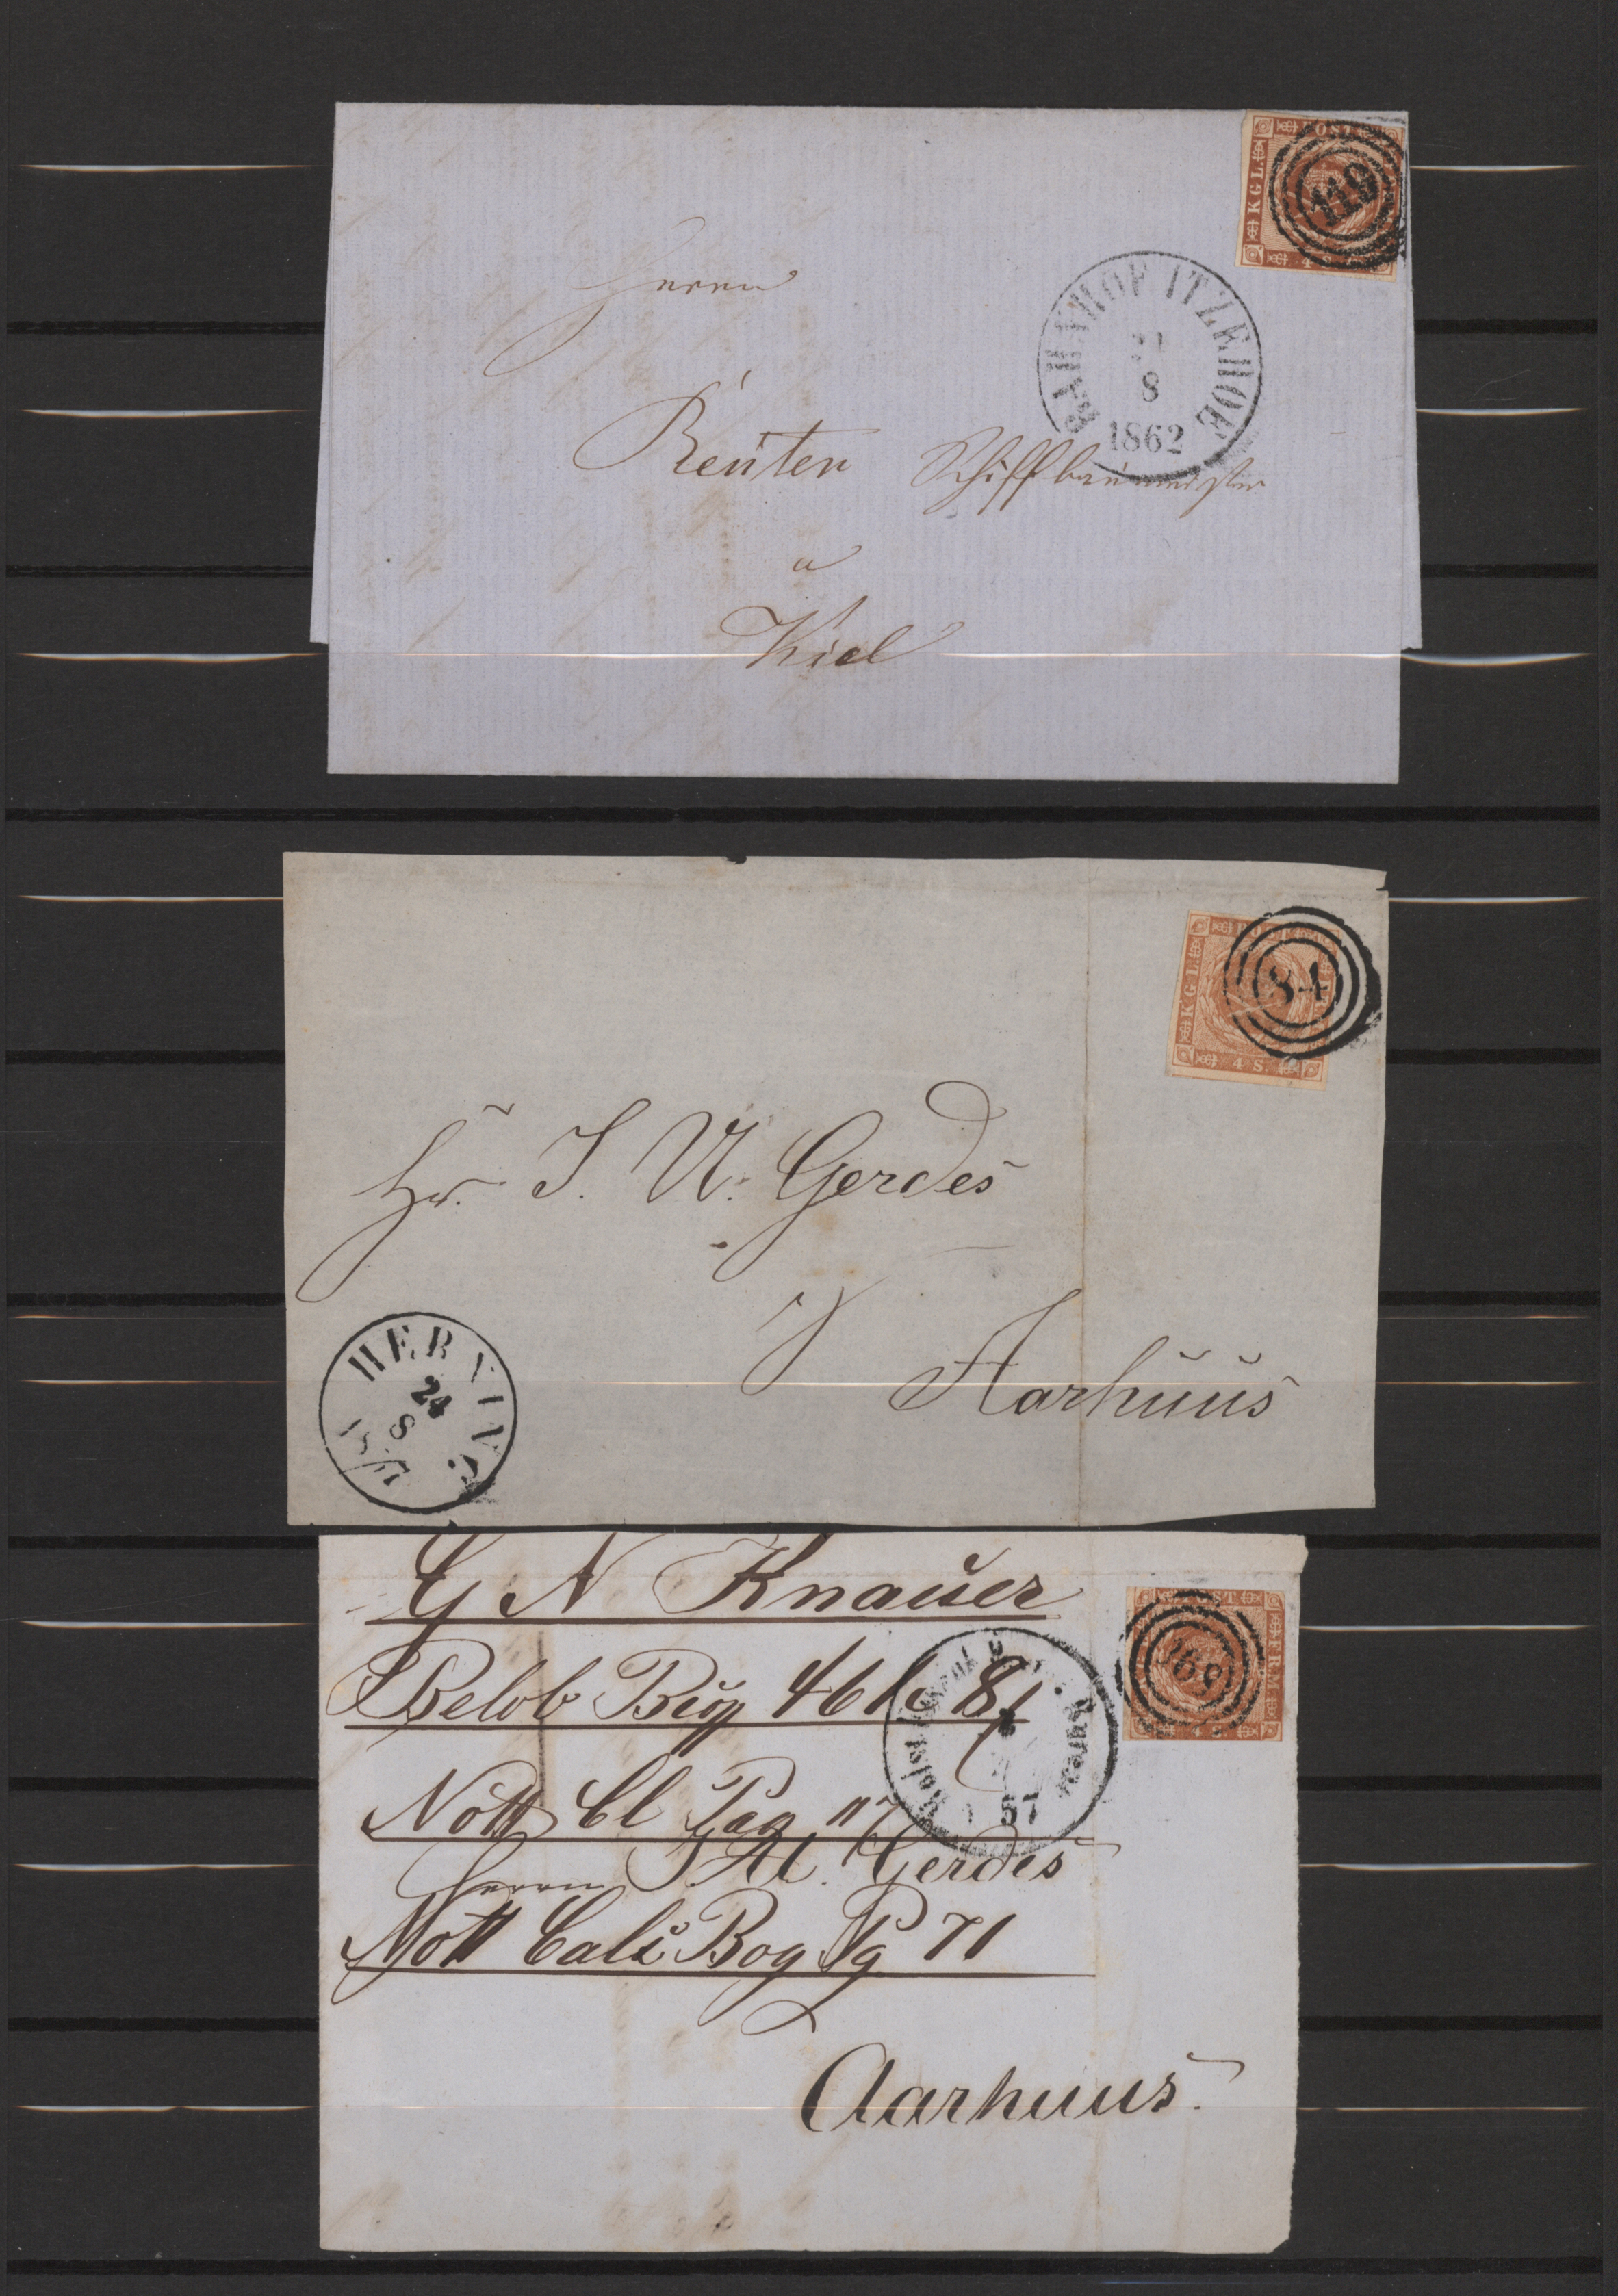 KGL. POST
119
4 S.
Herrn
BAHNHOF ITZEHOE
8
1862
Reuten Schiffbaumeister
a
Kiel
KGL. POST
84
4 S.
Hr. J. U. Gerdes
Aarhuus
HERNING
24
8
G N Knauer
POST
FRM
169
4 S
Belob Bog 46
57
Nott Cl Pag 117
Herrn Gerdes
Nott Bog Pg 71
Aarhuus.